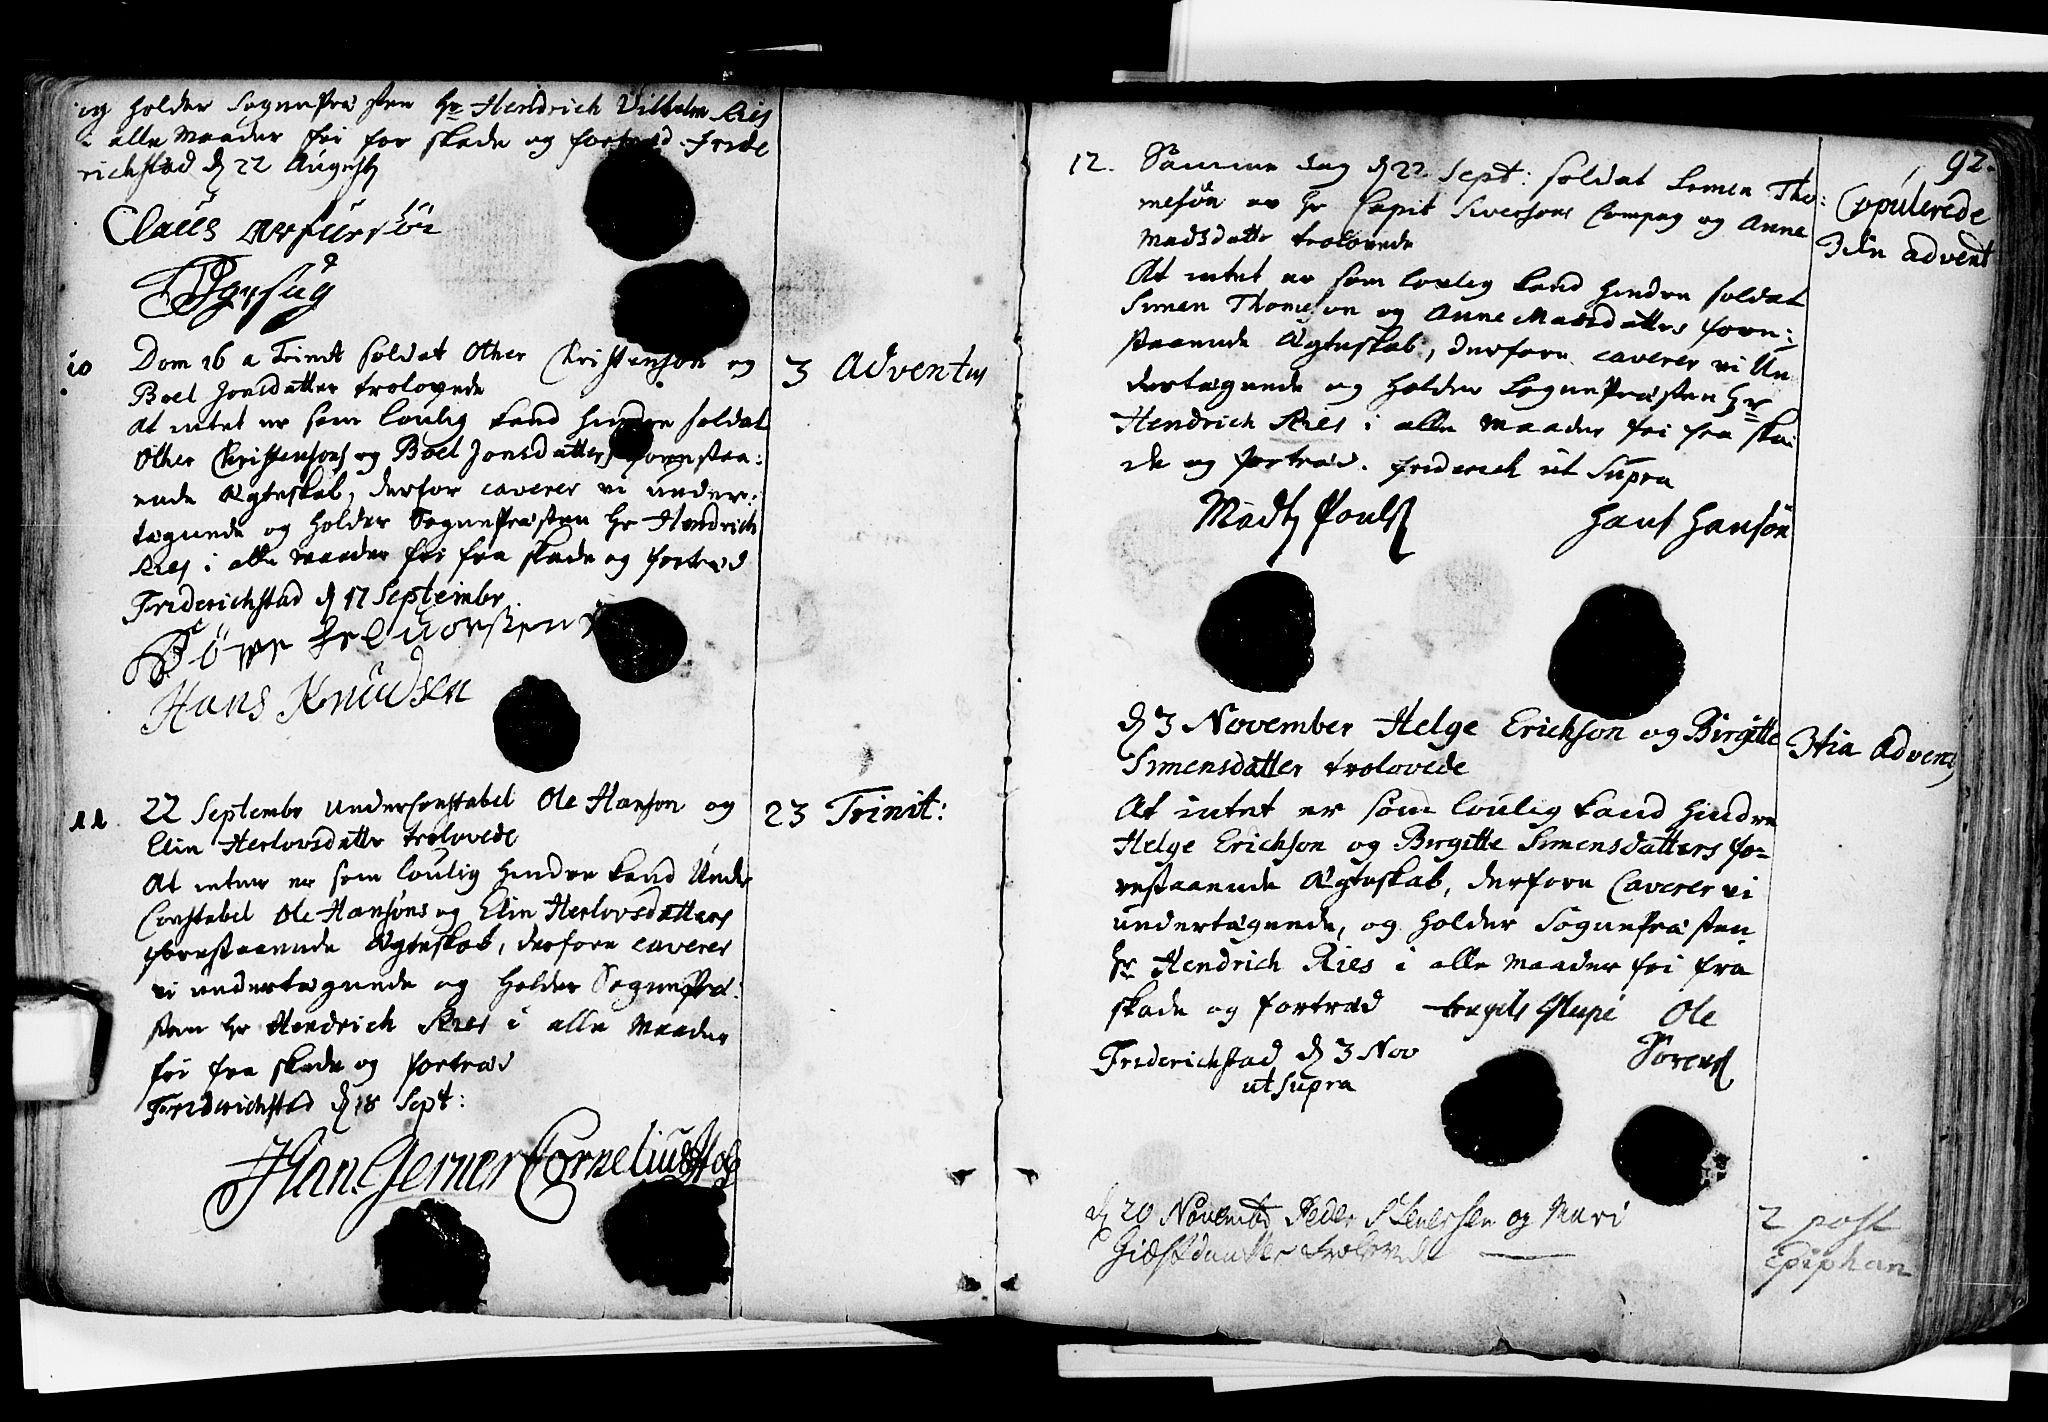 og holder SognePræsten Hr Hendrich Vilhelm Ries
i alle Maader fri for skade og fortræd. Fride
richstad d 22 Augusti
Claus
10 Dom 16 a Trinit Soldat Other Christenson og
Boel Jonsdatter trolovede
3 Adventus
At intet er som lovlig kand hindre Soldat
Other Christensons og Boel Jonsdatters forestaa:
ende Ægteskab, derfor caverer vi under:
tegnede og holder SognePræsten Hr Hendrich
Ries i alle maader fri fra skade og fortræd
Friderichstad d 17 Septembr
Hans Knudsen
11 22 Septembr UnderConstabel Ole Hanson og
Elin Herlovsdatter trolovede
23 Trinit:
At intet er som lovlig hindre kand Under
Constabel Ole Hansons og Elin Herlovsdatters
forestaaende Ægteskab, derfore caverer
vi undertegnede og holder SognePræ:
sten Hr Hendrich Ries i alle Maader
fri fra skade og fortræd
Friderichstad d 18 Sept:
Han Gerner Cornelius
92.
12. Samme dag d 22 Sept: Soldat Simen Tho:
meson af Hr Capit Siversons Compag og Anne
Madsdatter trolovede
Copulerede
Advent
At intet er som lovlig kand hindre Soldat
Simen Thomeson og Anne Madsdatters fore:
staaende Ægteskab, derfore caverer vi Un
dertegnede og holder SognePræsten Hr
Hendrich Ries i alle Maader fri fra ska
de og fortræd. Friderich ut Supra
Madtz Pouls
Hans Hanson
d 3 November Helge Erickson og Birgitte
Simensdatter trolovede
Advent
At intet er som lovlig kand hindre
Helge Erickson og Birgitte Simensdatters fo=
restaaende Ægteskab, derfore Caverer vi
undertegnede, og holder SognePræsten
Hr Hendrich Ries i alle Maader fri fra
skade og fortræd
Ole
Sörens
Friderichstad d 3 Nov
ut Supra
d 20 Novembr Peder og Mari
trolovede
2 post
Epiphan